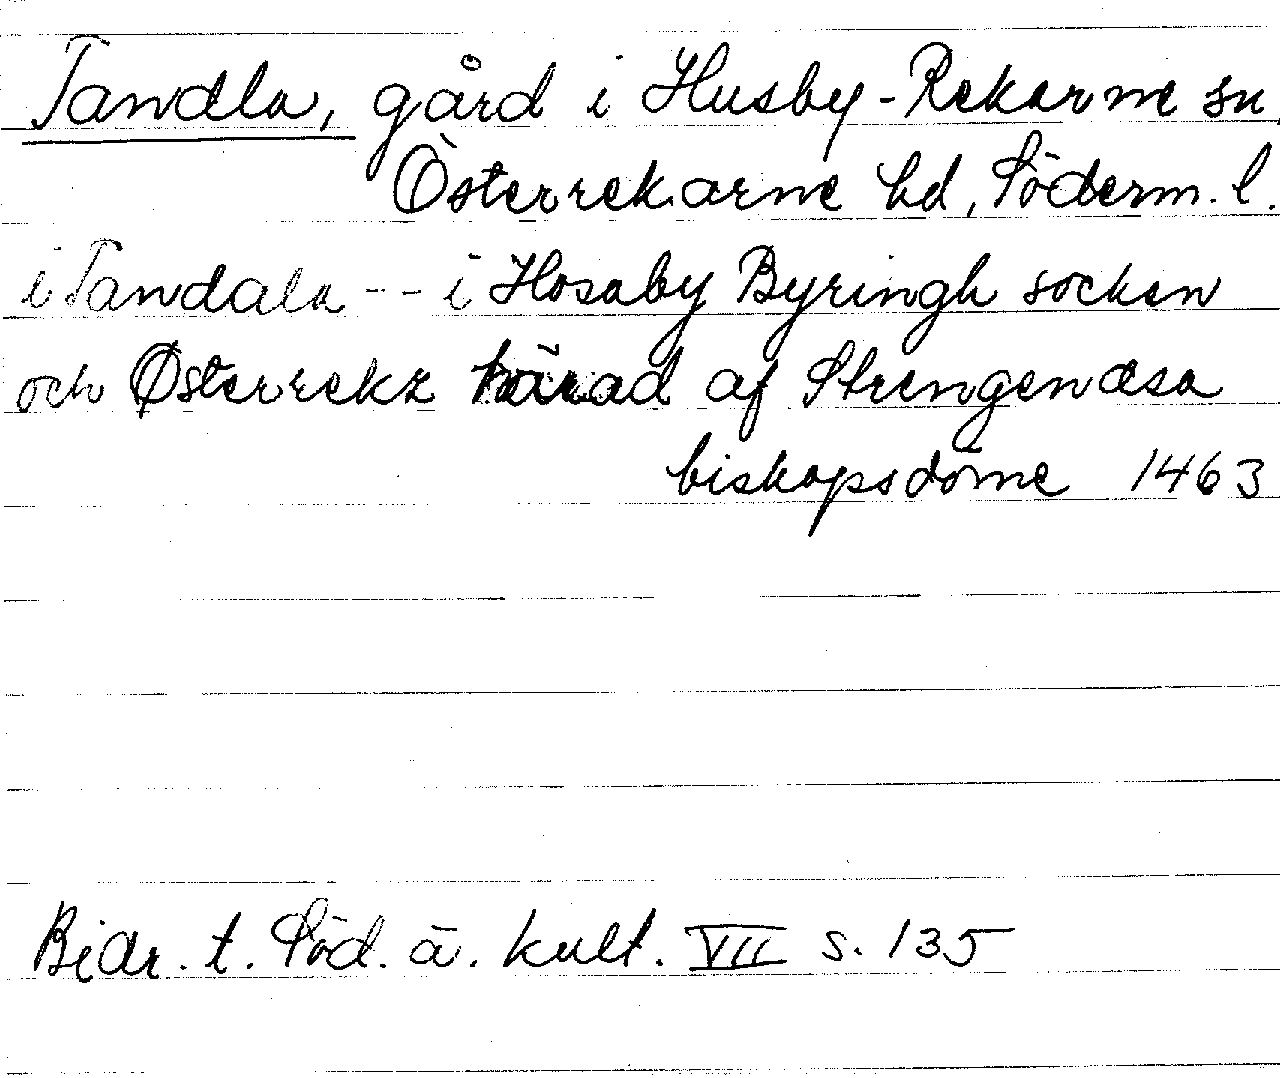 Tandla, gård i Husby-Rekarne sn,
Österrekarne hd, Söderm. l.
i Tandala -- i Hosaby Byringh socken
och Østerrekz härad af Strengenæsa
biskopsdöme 1463
Bidr. t. Söd. ä. kult. VII s. 135